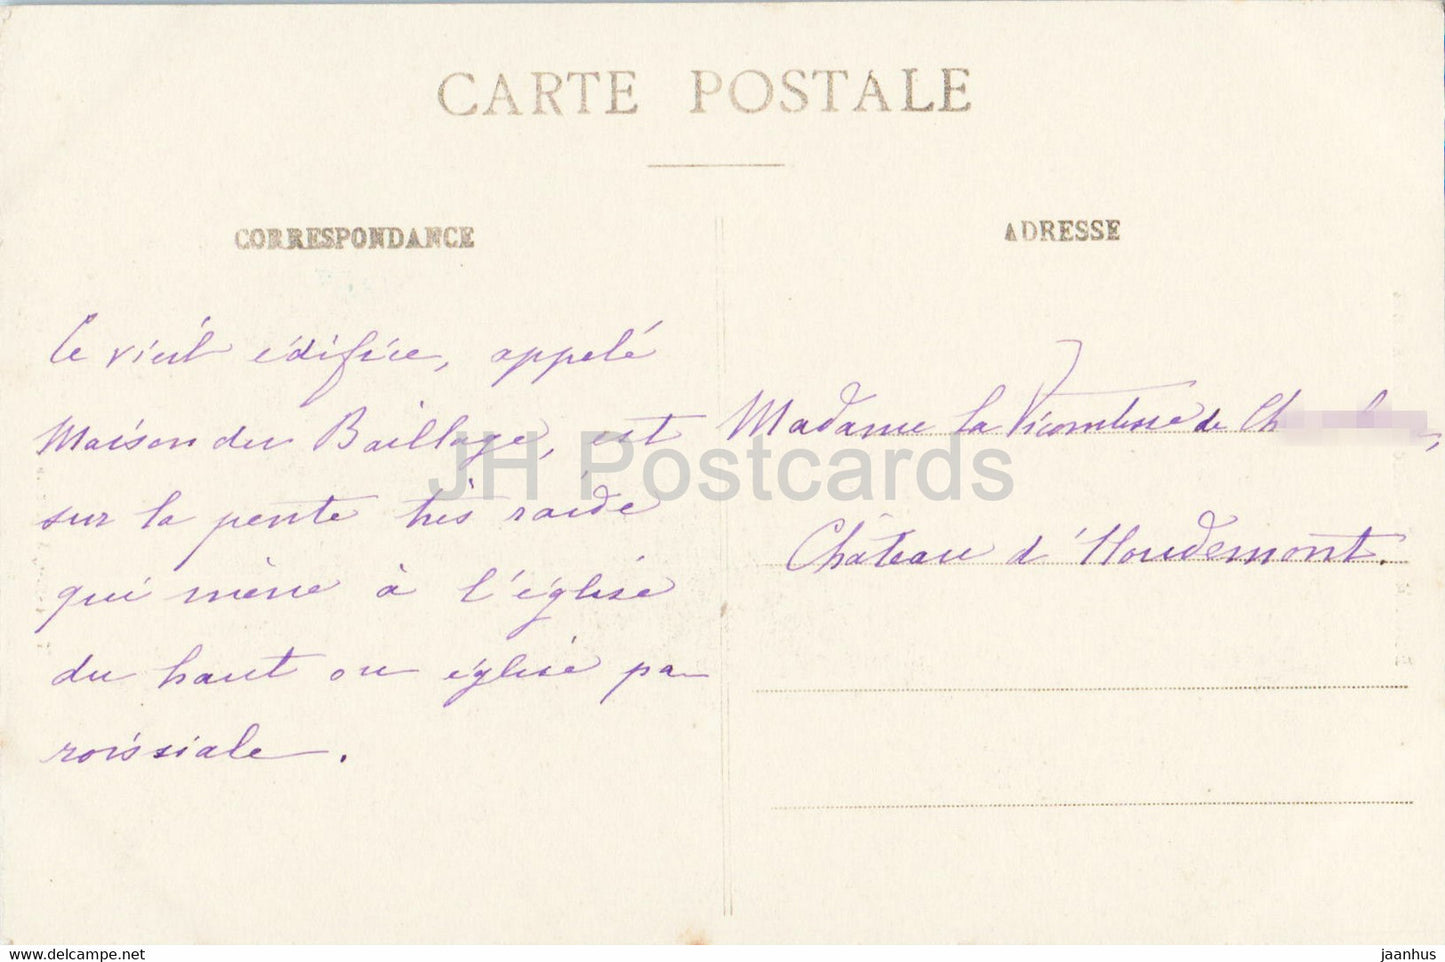 CARTE POSTALE
CORRESPONDANCE
Ce vieil édifice, appelé
Maison du Baillage, est
sur la pente très raide
qui mène à l'église
du haut ou église pa-
roissiale.
ADRESSE
Madame la Vicomtesse de Ch
Château d'Houdemont.
JH Postcards
www.delcampe.net
jaanhus